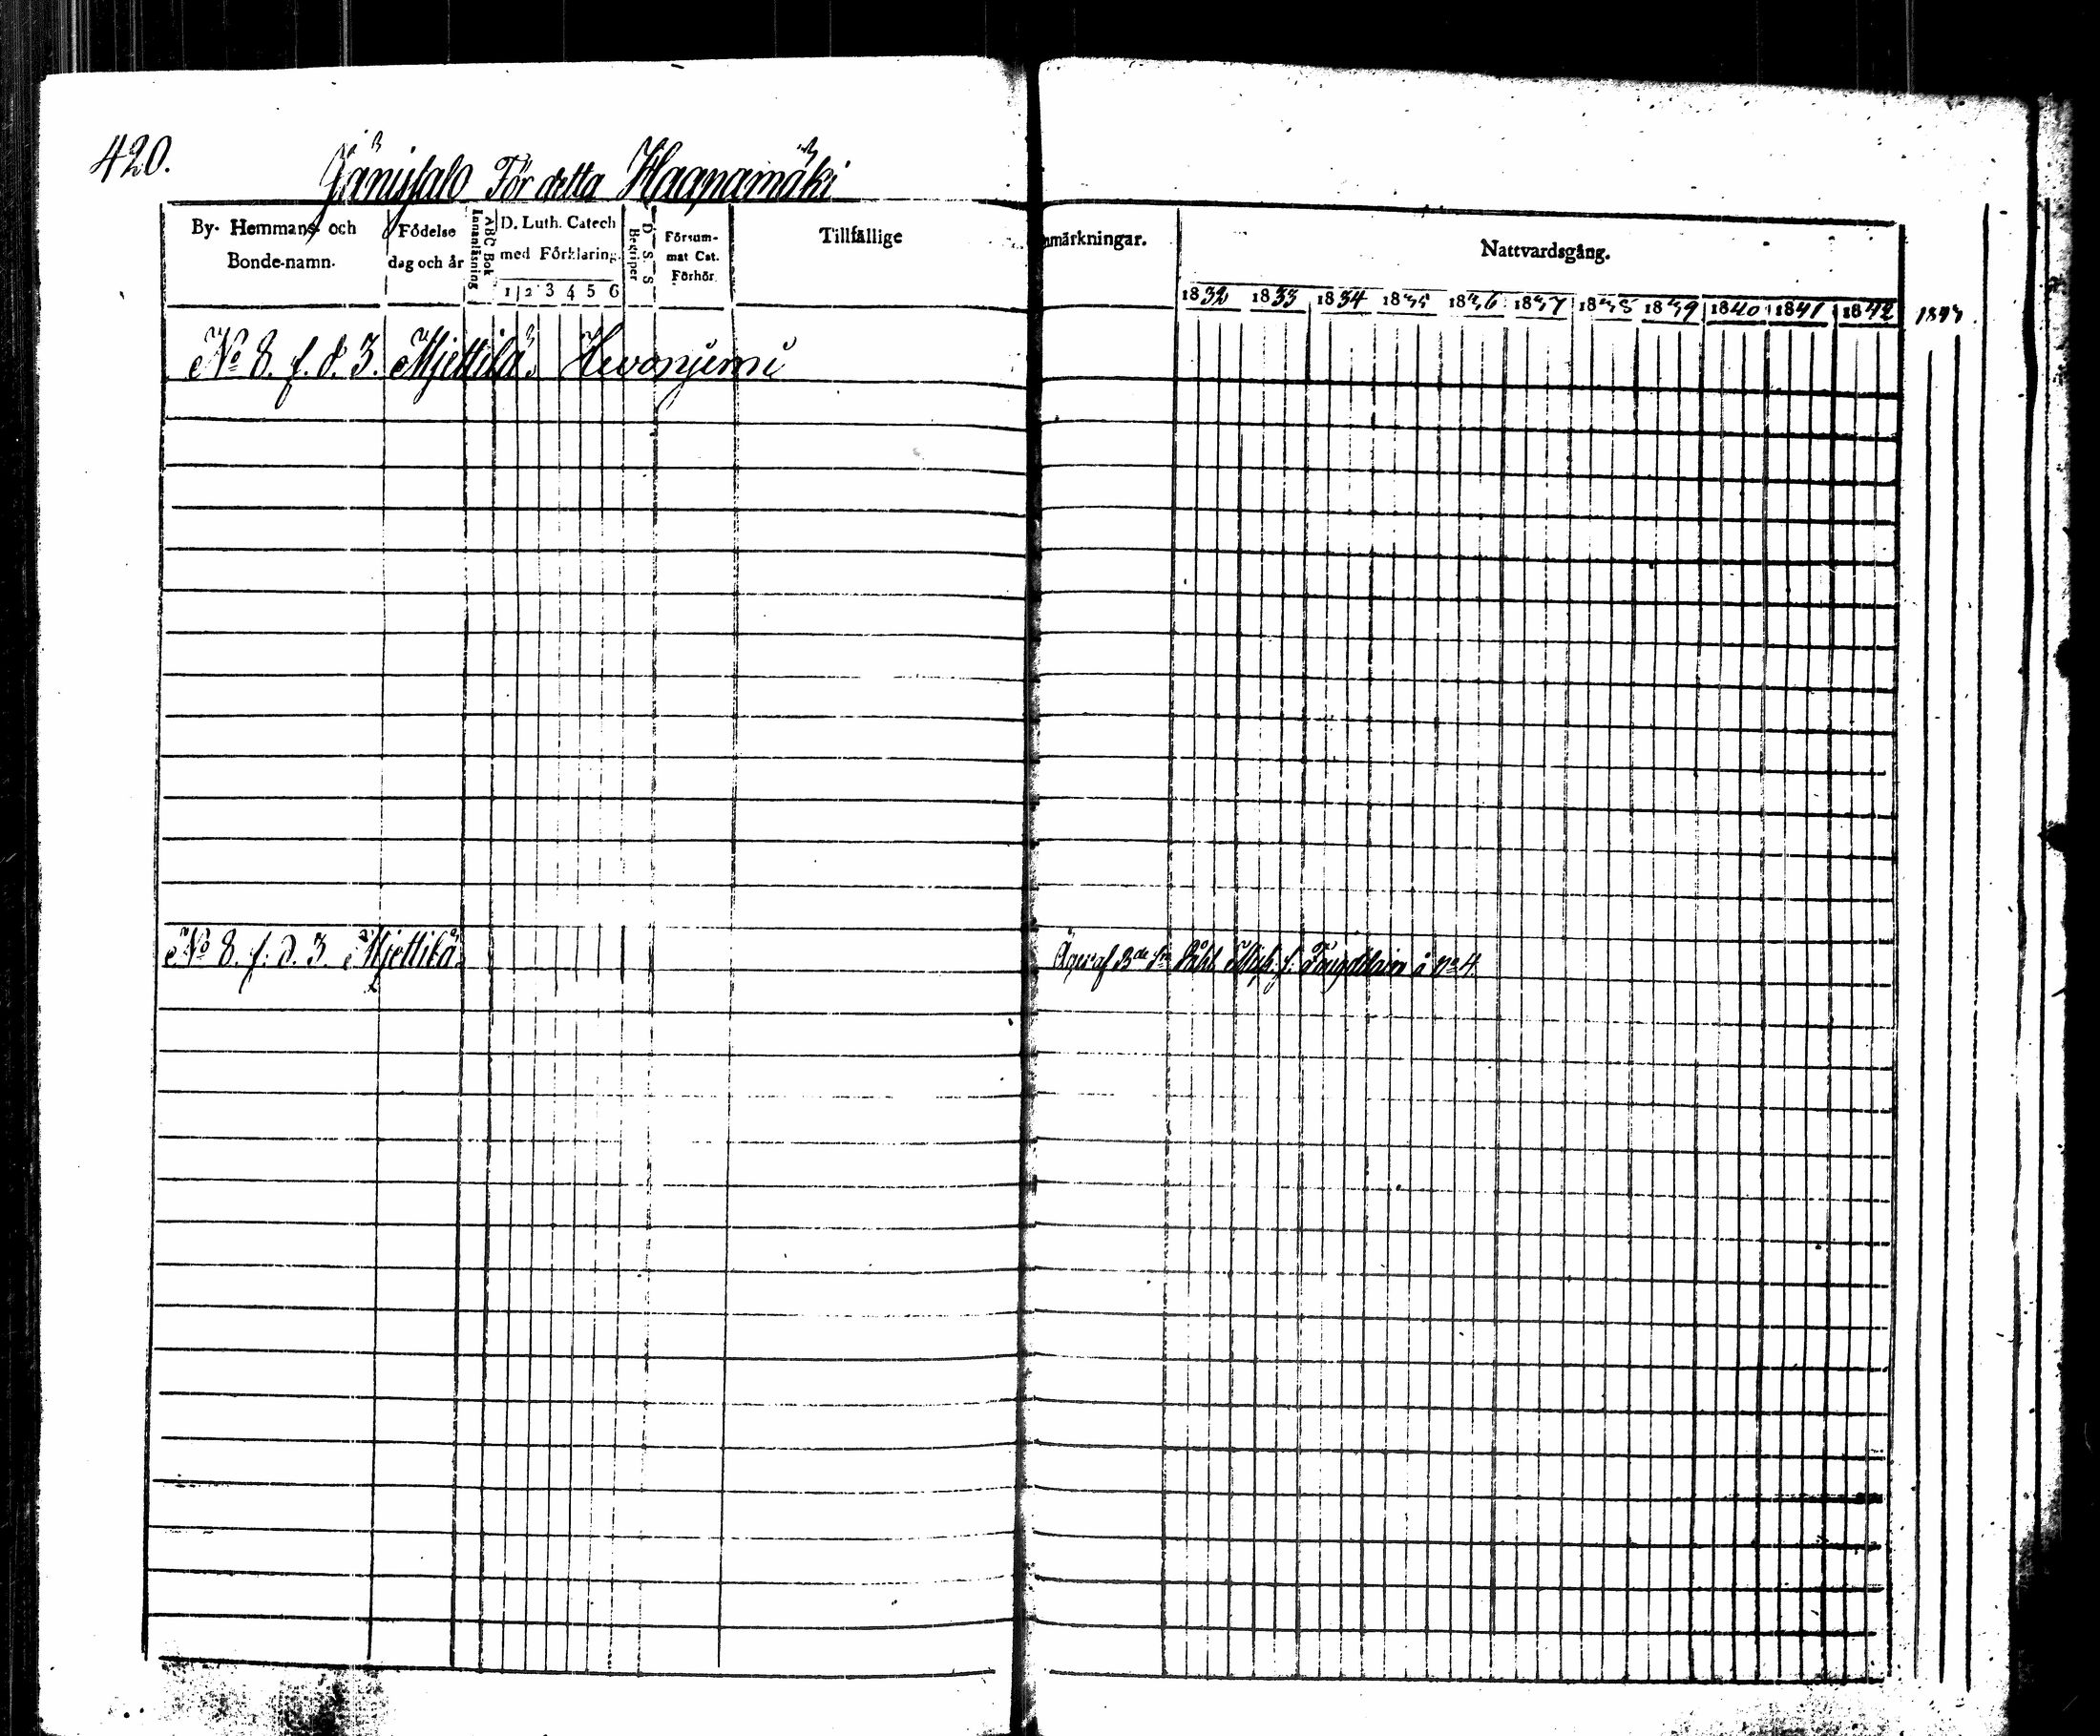 420.
Jänissalo För detta Haapamäki
By- Hemmans och Bonde-namn.
Födelse dag och år
ABC Bok Innanläsning
D. Luth. Catech med Förklaring.
1 2 3 4 5 6
D. S. S. Begriper
Försum- mat Cat. Förhör
Tillfällige
nmärkningar.
Nattvardsgång.
1832 1833 1834 1835 1836 1837 1838 1839 1840 1841 1842 1843
No 8. f. d. 3. Mjettilä. Hevonjemi
No 8. f. d. 3. Mjettilä
Äges af Bde Sn Påhl å No 4.